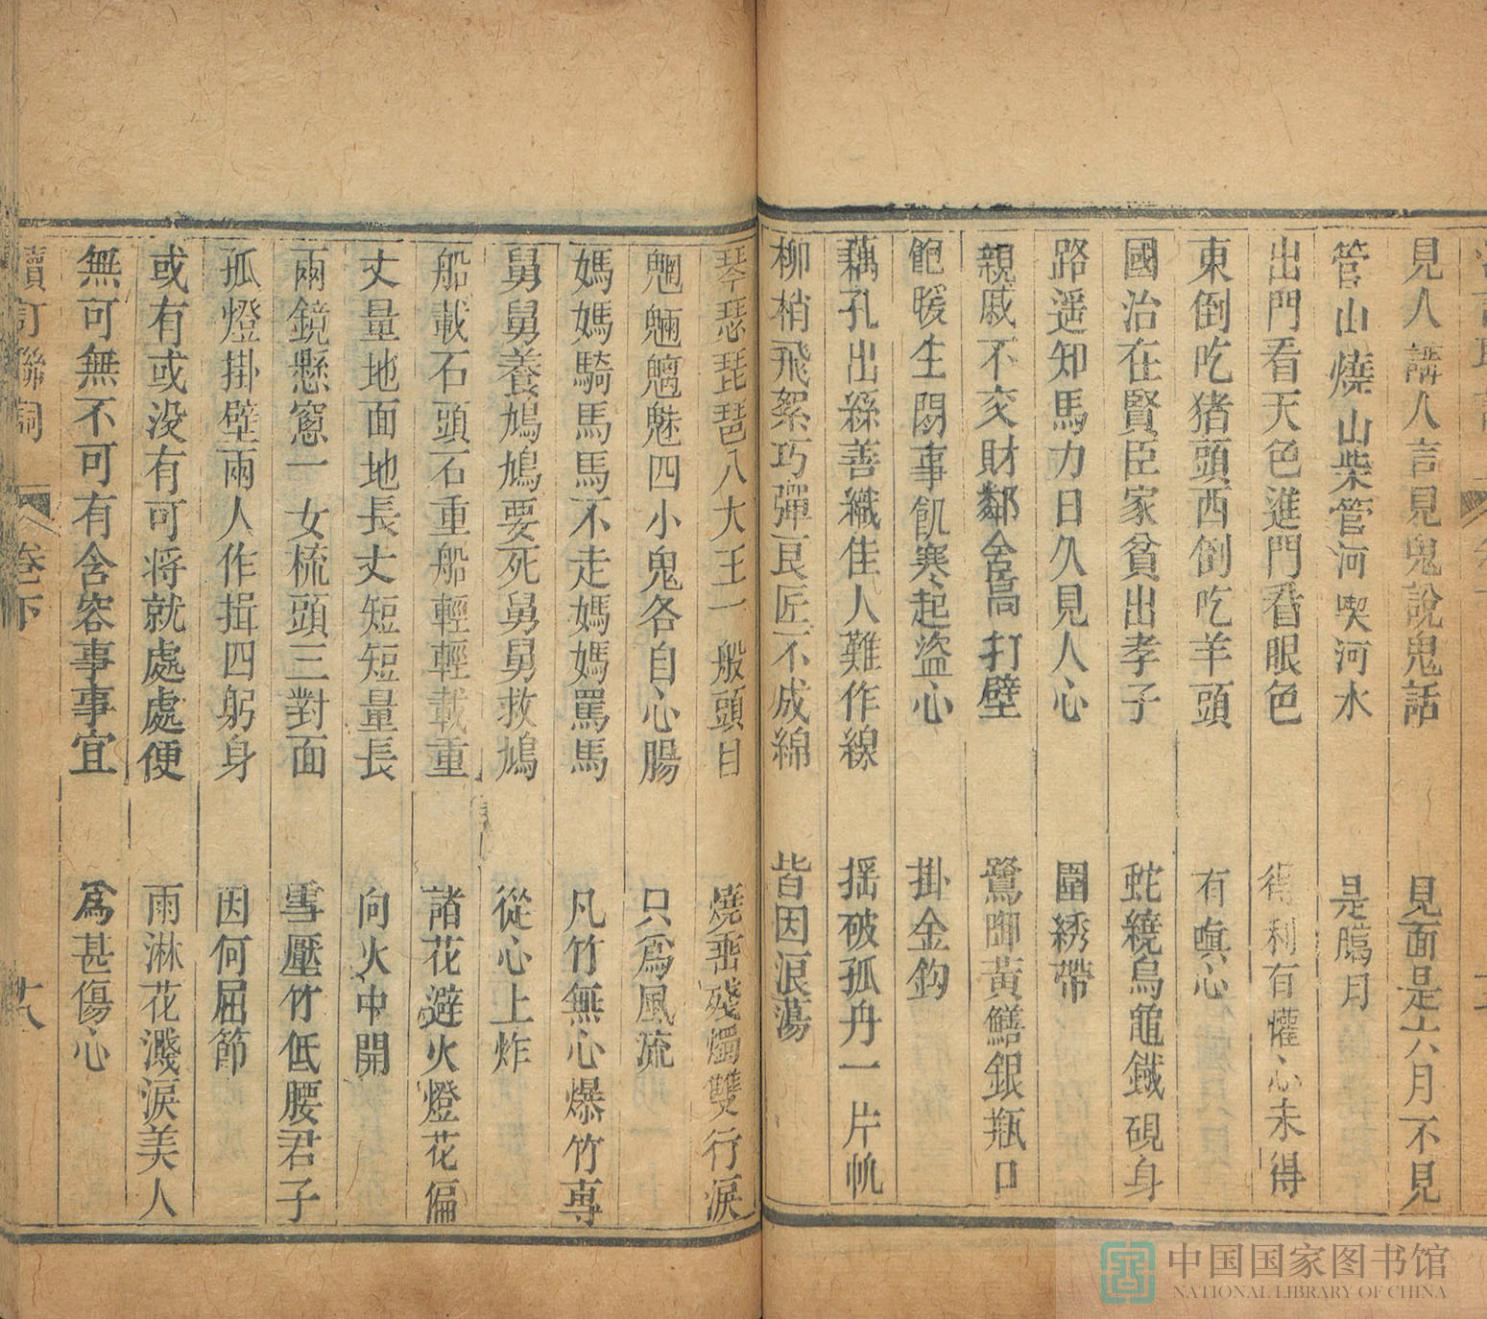 見人講人言見鬼說鬼話　見面是六月不見
管山燒山柴管河喫河水　是臘月
出門看天色進門看眼色　得利有懽心未得
東倒吃猪頭西倒吃羊頭　有嗔心
國治在賢臣家貧出孝子　蛇繞烏龜鐵硯身
路遥知馬力日久見人心　圍綉帶
親戚不交財鄰舍高打壁　鷺啣黃鱔銀瓶口
飽暖生閑事飢寒起盜心　掛金鈎
藕孔出絲善織佳人難作線　揺破孤舟一片帆
柳梢飛絮巧彈良匠不成綿　皆因浪蕩
琴瑟琵琶八大王一般頭目　燒殘燭雙行淚
魍魎魑魅四小鬼各自心腸　只爲風流
媽媽騎馬馬不走媽媽罵馬　凡竹無心爆竹專
舅舅養鳩鳩要死舅舅救鳩　從心上炸
船載石頭石重船輕輕載重　諸花避火燈花偏
丈量地面地長丈短短量長　向火中開
兩鏡懸窻一女梳頭三對面　雪壓竹低腰君子
孤燈掛壁兩人作揖四躬身　因何屈節
或有或没有可将就處處便　雨淋花濺淚美人
無可無不可有含容事事宜　爲甚傷心
續訂聯詞　卷下　十八
中国国家图书馆
NATIONAL LIBRARY OF CHINA